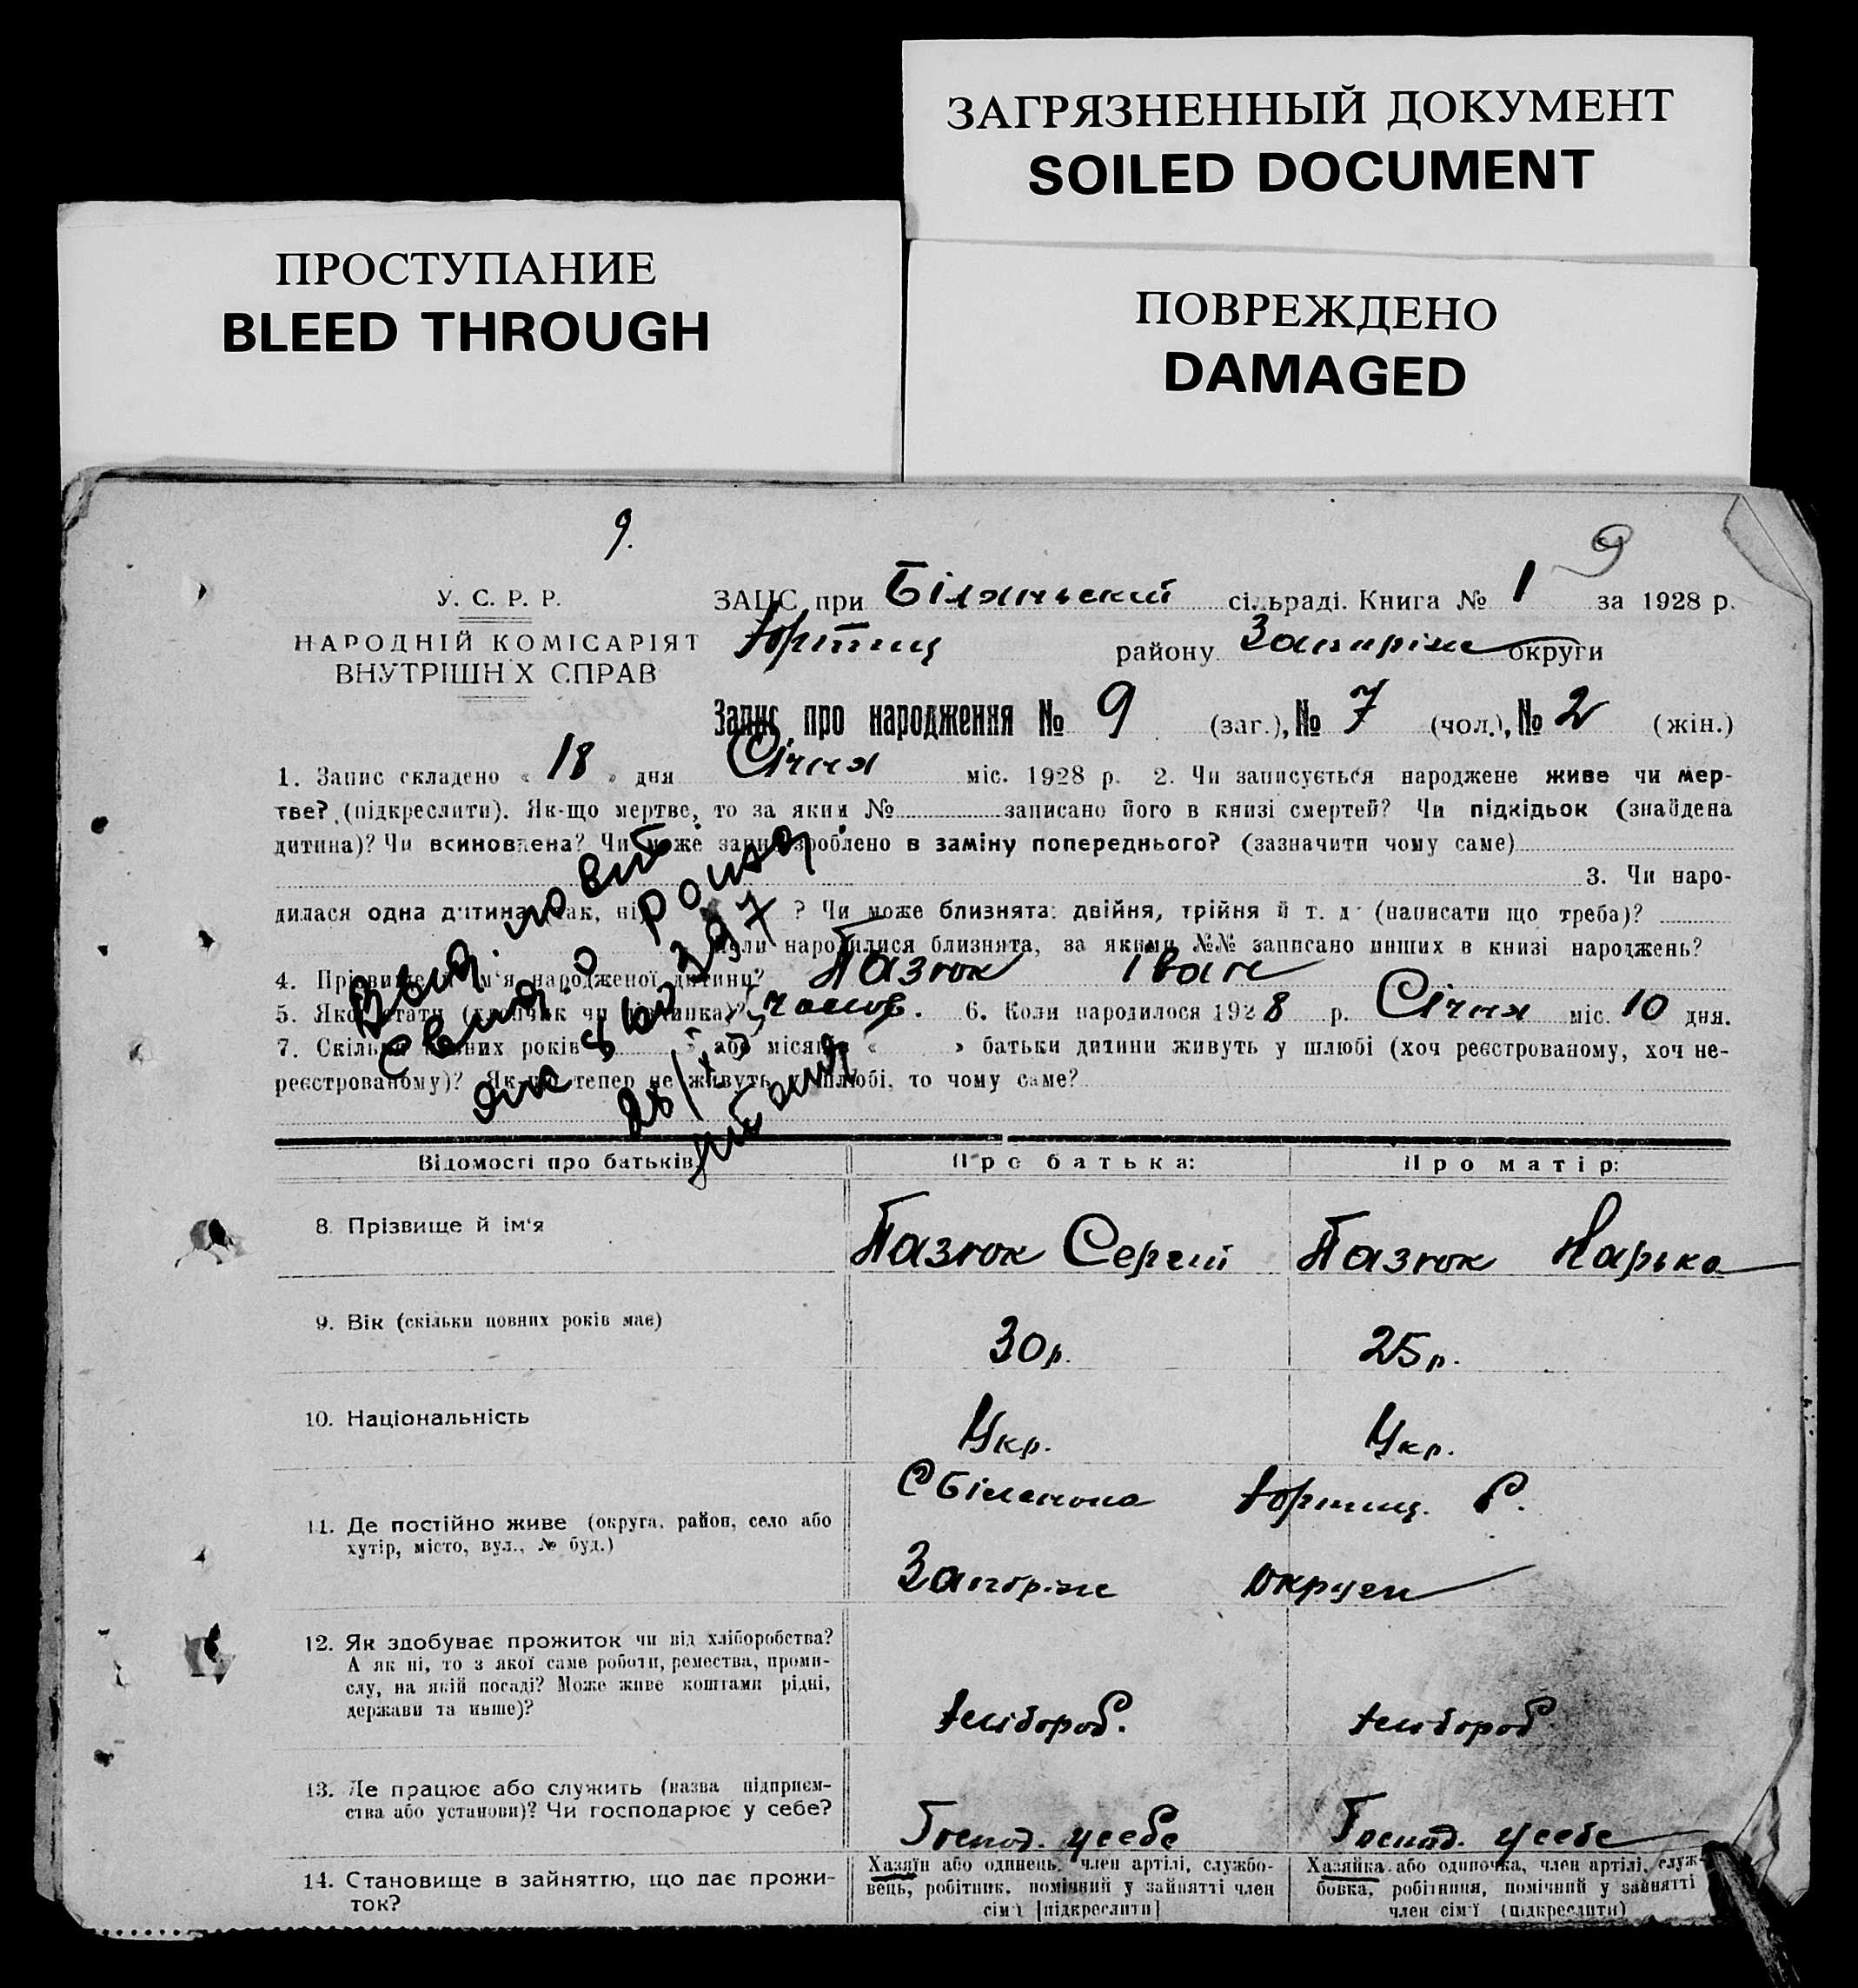 ЗАГРЯЗНЕННЫЙ ДОКУМЕНТ
SOILED DOCUMENT
ПРОСТУПАНИЕ
BLEED THROUGH
ПОВРЕЖДЕНО
DAMAGED
9.
9
У. С. Р. Р.
НАРОДНІЙ КОМІСАРІЯТ
ВНУТРІШН Х СПРАВ
ЗАЦС при Біляньский сільраді. Книга № 1 за 1928 р.
Хортиц району Запоріж округи
Запис про народження № 9 (заг.), № 7 (чол.), № 2 (жін.)
1. Запис складено « 18 » дня Січня міс. 1928 р. 2. Чи записується народжене живе чи мер-
тве? (підкреслити). Як-що мертве, то за яким № записано його в книзі смертей? Чи підкідьок (знайдена
дитина)? Чи всиновлена? Чи може запис зроблено в заміну попереднього? (зазначити чому саме)
3. Чи наро-
дилася одна дитина так, ні ? Чи може близнята: двійня, трійня й т. д. (написати що треба)?
Коли народилися близнята, за якими №№ записано инших в книзі народжень?
4. Прізвище й ім‘я народженої дитини? Пазюк Іван
5. Якої статі (хлопчик чи дівчинка)? чолов. 6. Коли народилося 1928 р. Січня міс. 10 дня.
7. Скільки повних років або місяців « » батьки дитини живуть у шлюбі (хоч реєстрованому, хоч не-
реєстрованому)? Як-що тепер не живуть у шлюбі, то чому саме?
Відомості про батьків Про батька: Про матір:
8. Прізвище й ім‘я Пазюк Сергій Пазюк Марька
9. Вік (скільки повних років має) 30 р. 25 р.
10. Національність Укр. Укр.
11. Де постійно живе (округа, район, село або
хутір, місто, вул., № буд.)
Хортиц. Р.
Запоріж округи
12. Як здобуває прожиток чи від хліборобства?
А як ні, то з якої саме роботи, ремества, проми-
слу, на якій посаді? Може живе коштами рідні,
держави та инше)?
хлібороб. хлібороб
13. Де працює або служить (назва підприєм-
ства або установи)? Чи господарює у себе?
Господ. у себе Господ. у себе
14. Становище в зайняттю, що дає прожи-
ток?
Хазяїн або одинець, член артілі, службо-
вець, робітник, помічний у зайнятті член
сім‘ї [підкреслити]
Хазяйка або одиночка, член артілі, служ-
бовка, робітниця, помічний у зайнятті
член сім‘ї (підкреслити)